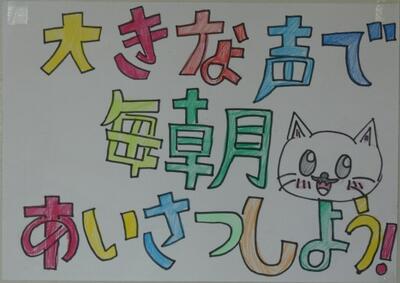 大きな声で
毎朝
あいさつしよう!